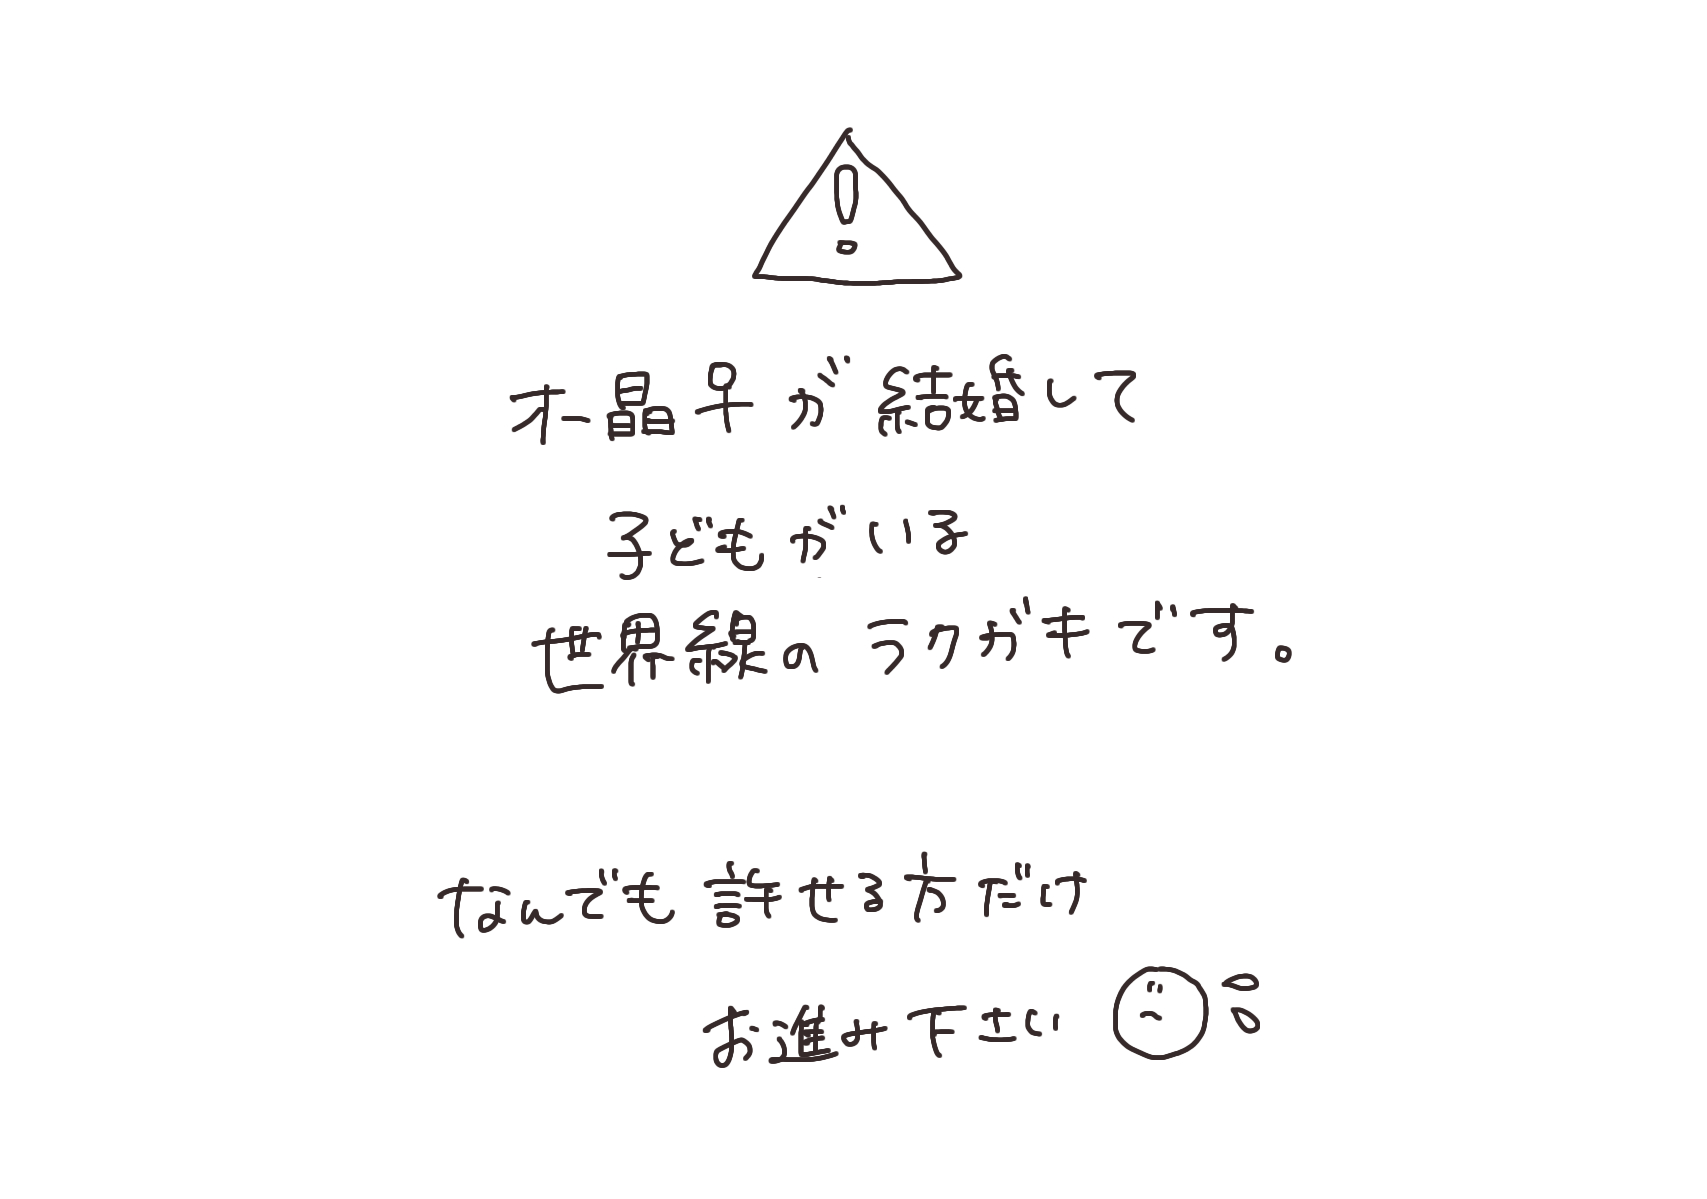 !
オー晶♀が結婚して
子どもがいる
世界線のラクガキです。
なんでも許せる方だけ
お進み下さい